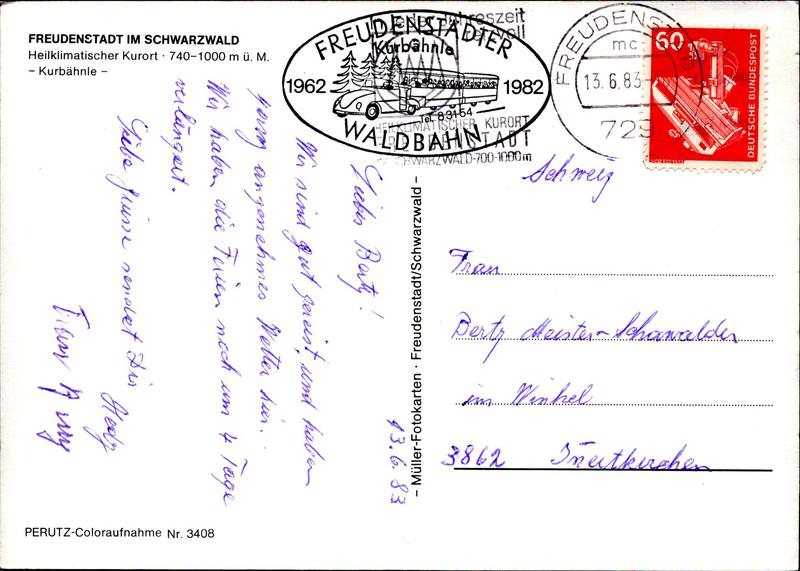 FREUDENSTADT IM SCHWARZWALD
Heilklimatischer Kurort · 740–1000 m ü. M.
– Kurbähnle –
FREUDENSTÄDTER
Kurbähnle
1962
1982
Tel. 83154
WALDBAHN
jeder Jahreszeit
HEILKLIMATISCHER KURORT
SCHWARZWALD·700-1000m
FREUDENST
mc
13.6.83
729
60
DEUTSCHE BUNDESPOST
Liebe Berty!
Wir sind gut gereist und haben
ganz angenehmes Wetter hier.
Wir haben die Ferien noch um 4 Tage
verlängert.
Liebe Grüsse sendet Dir
Hedy
13.6.83
– Müller-Fotokarten · Freudenstadt/Schwarzwald –
Schweiz
Frau
Berty Meister-Schawalder
im Winkel
3862 Innertkirchen
PERUTZ-Coloraufnahme Nr. 3408